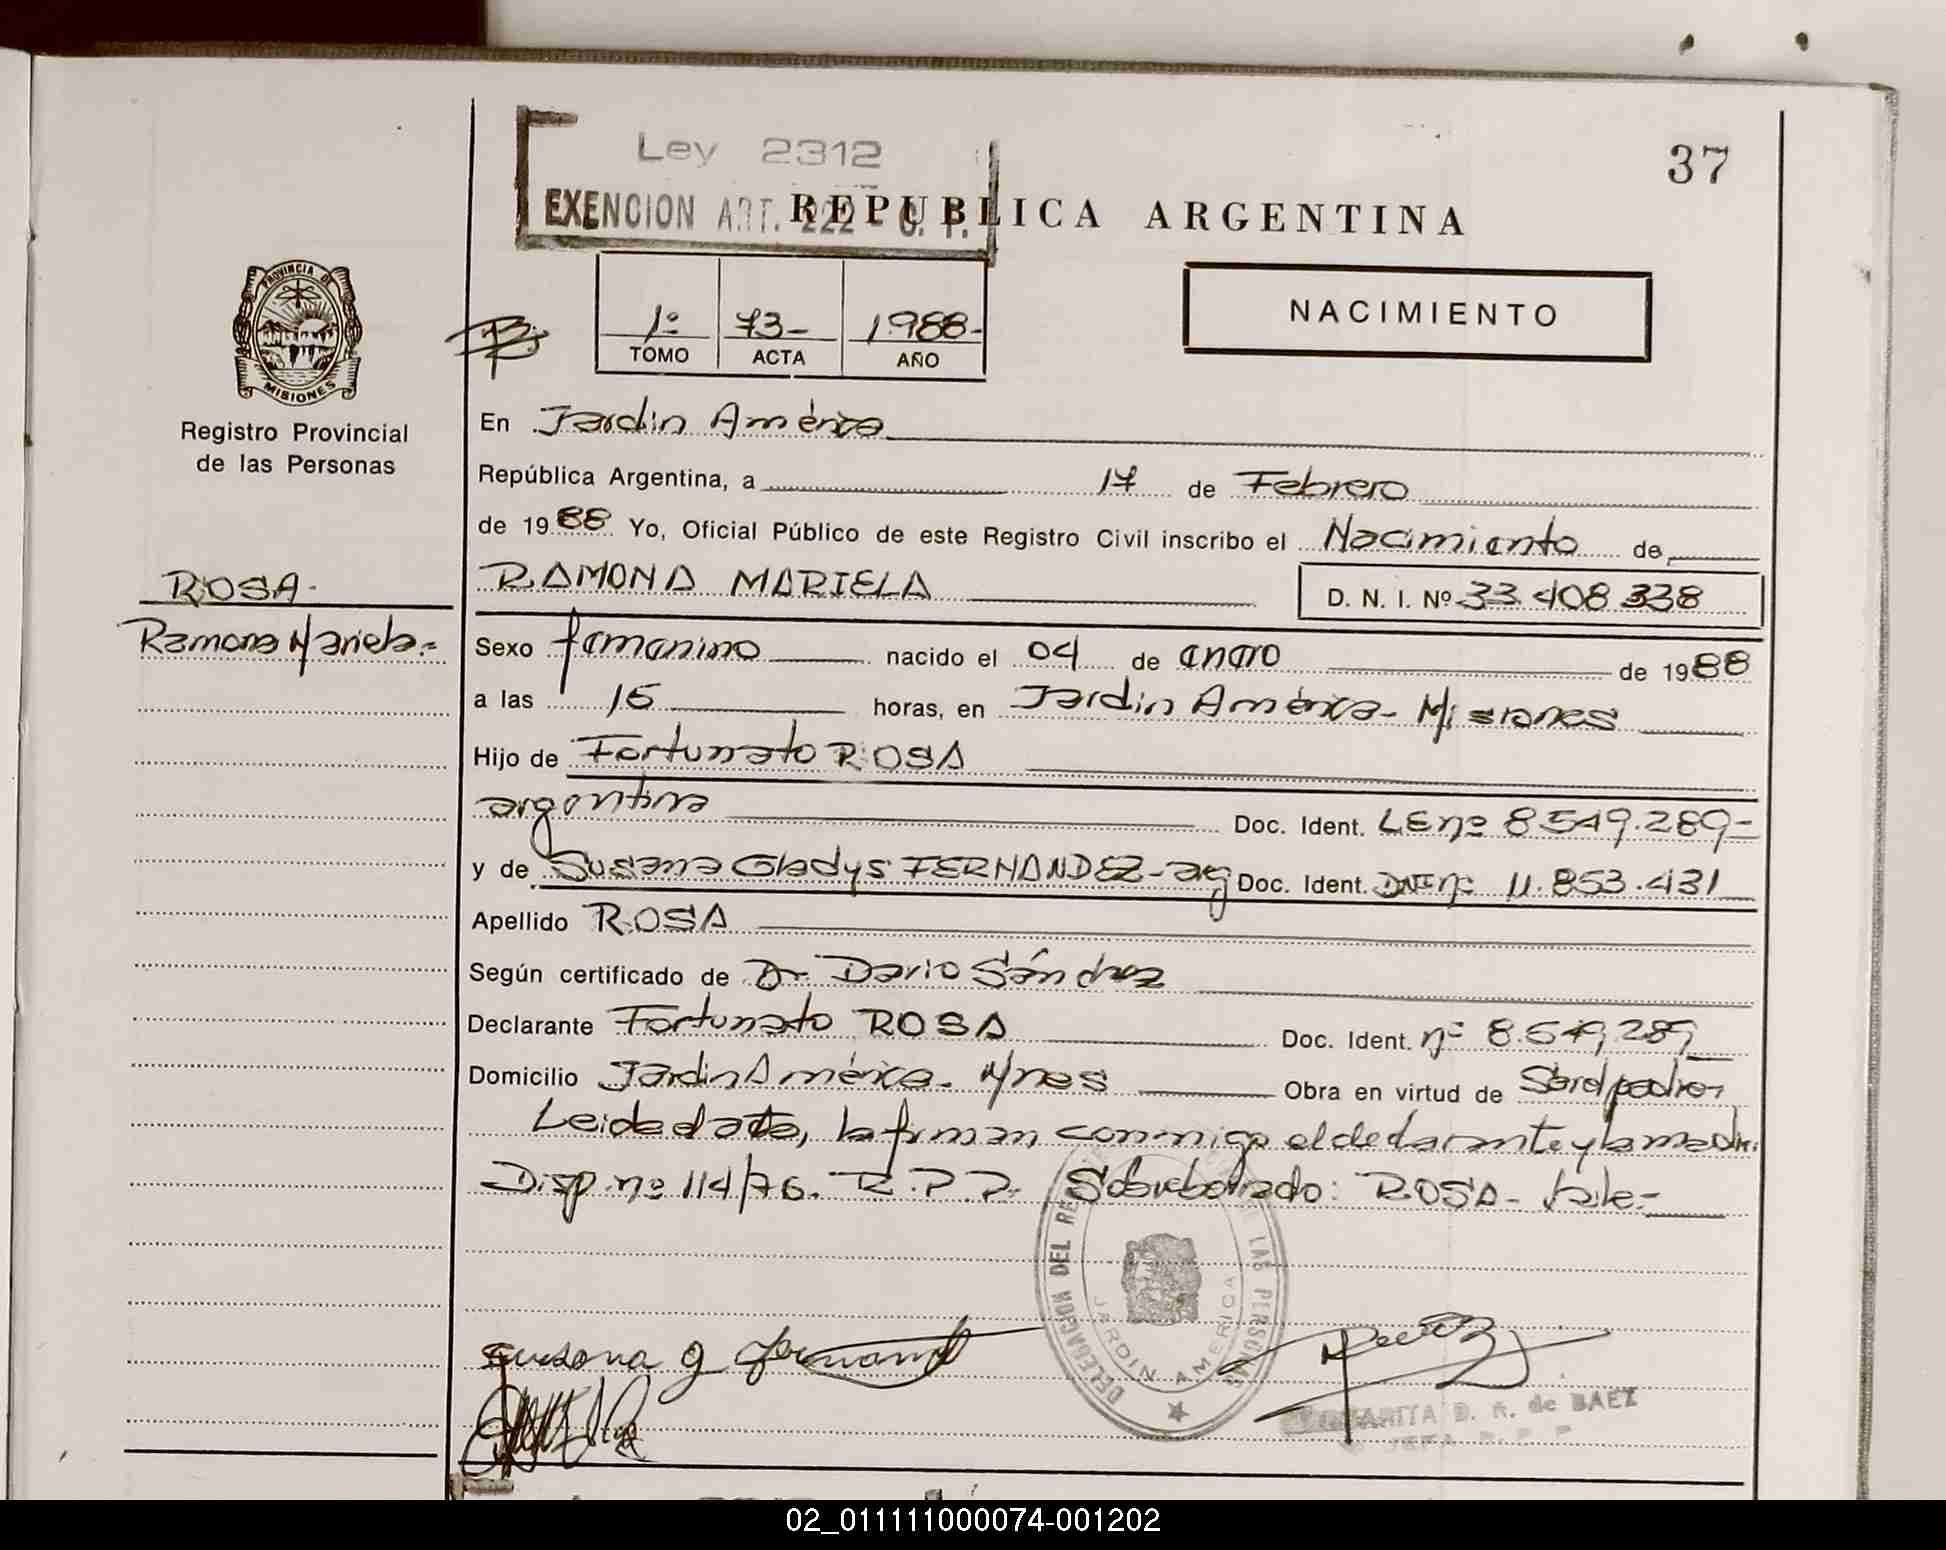 37
Ley 2312
EXENCION ART. 222 C. F.
REPUBLICA ARGENTINA
NACIMIENTO
1º 73- 1.988-
TOMO ACTA AÑO
PROVINCIA DE
MISIONES
Registro Provincial
de las Personas
ROSA-
Ramona Mariela.=
En Jardín América
República Argentina, a 17 de Febrero
de 1988 Yo, Oficial Público de este Registro Civil inscribo el Nacimiento de
RAMONA MARIELA D. N. I. Nº 33.408.338
Sexo femenino nacido el 04 de enero de 1988
a las 15 horas, en Jardín América- Misiones
Hijo de Fortunato ROSA
argentina Doc. Ident. LE nº 8.549.289-
y de Susana Gladys FERNANDEZ-arg Doc. Ident. DNI nº 11.853.431
Apellido ROSA
Según certificado de Dr. Dario Sánchez
Declarante Fortunato ROSA Doc. Ident. nº 8.549.289
Domicilio Jardín América- Mnes Obra en virtud de Ser el padre-
Leida el acta, la firman conmigo el declarante y la madre.
Disp. nº 114/76. R.P.P. Sobreborrado: ROSA- Vale-
DELEGACION DEL LAS PERSONAS
JARDIN AMERICA
Susana G Fernand
D. R. de BAEZ
JEFA R. P. P
02_011111000074-001202